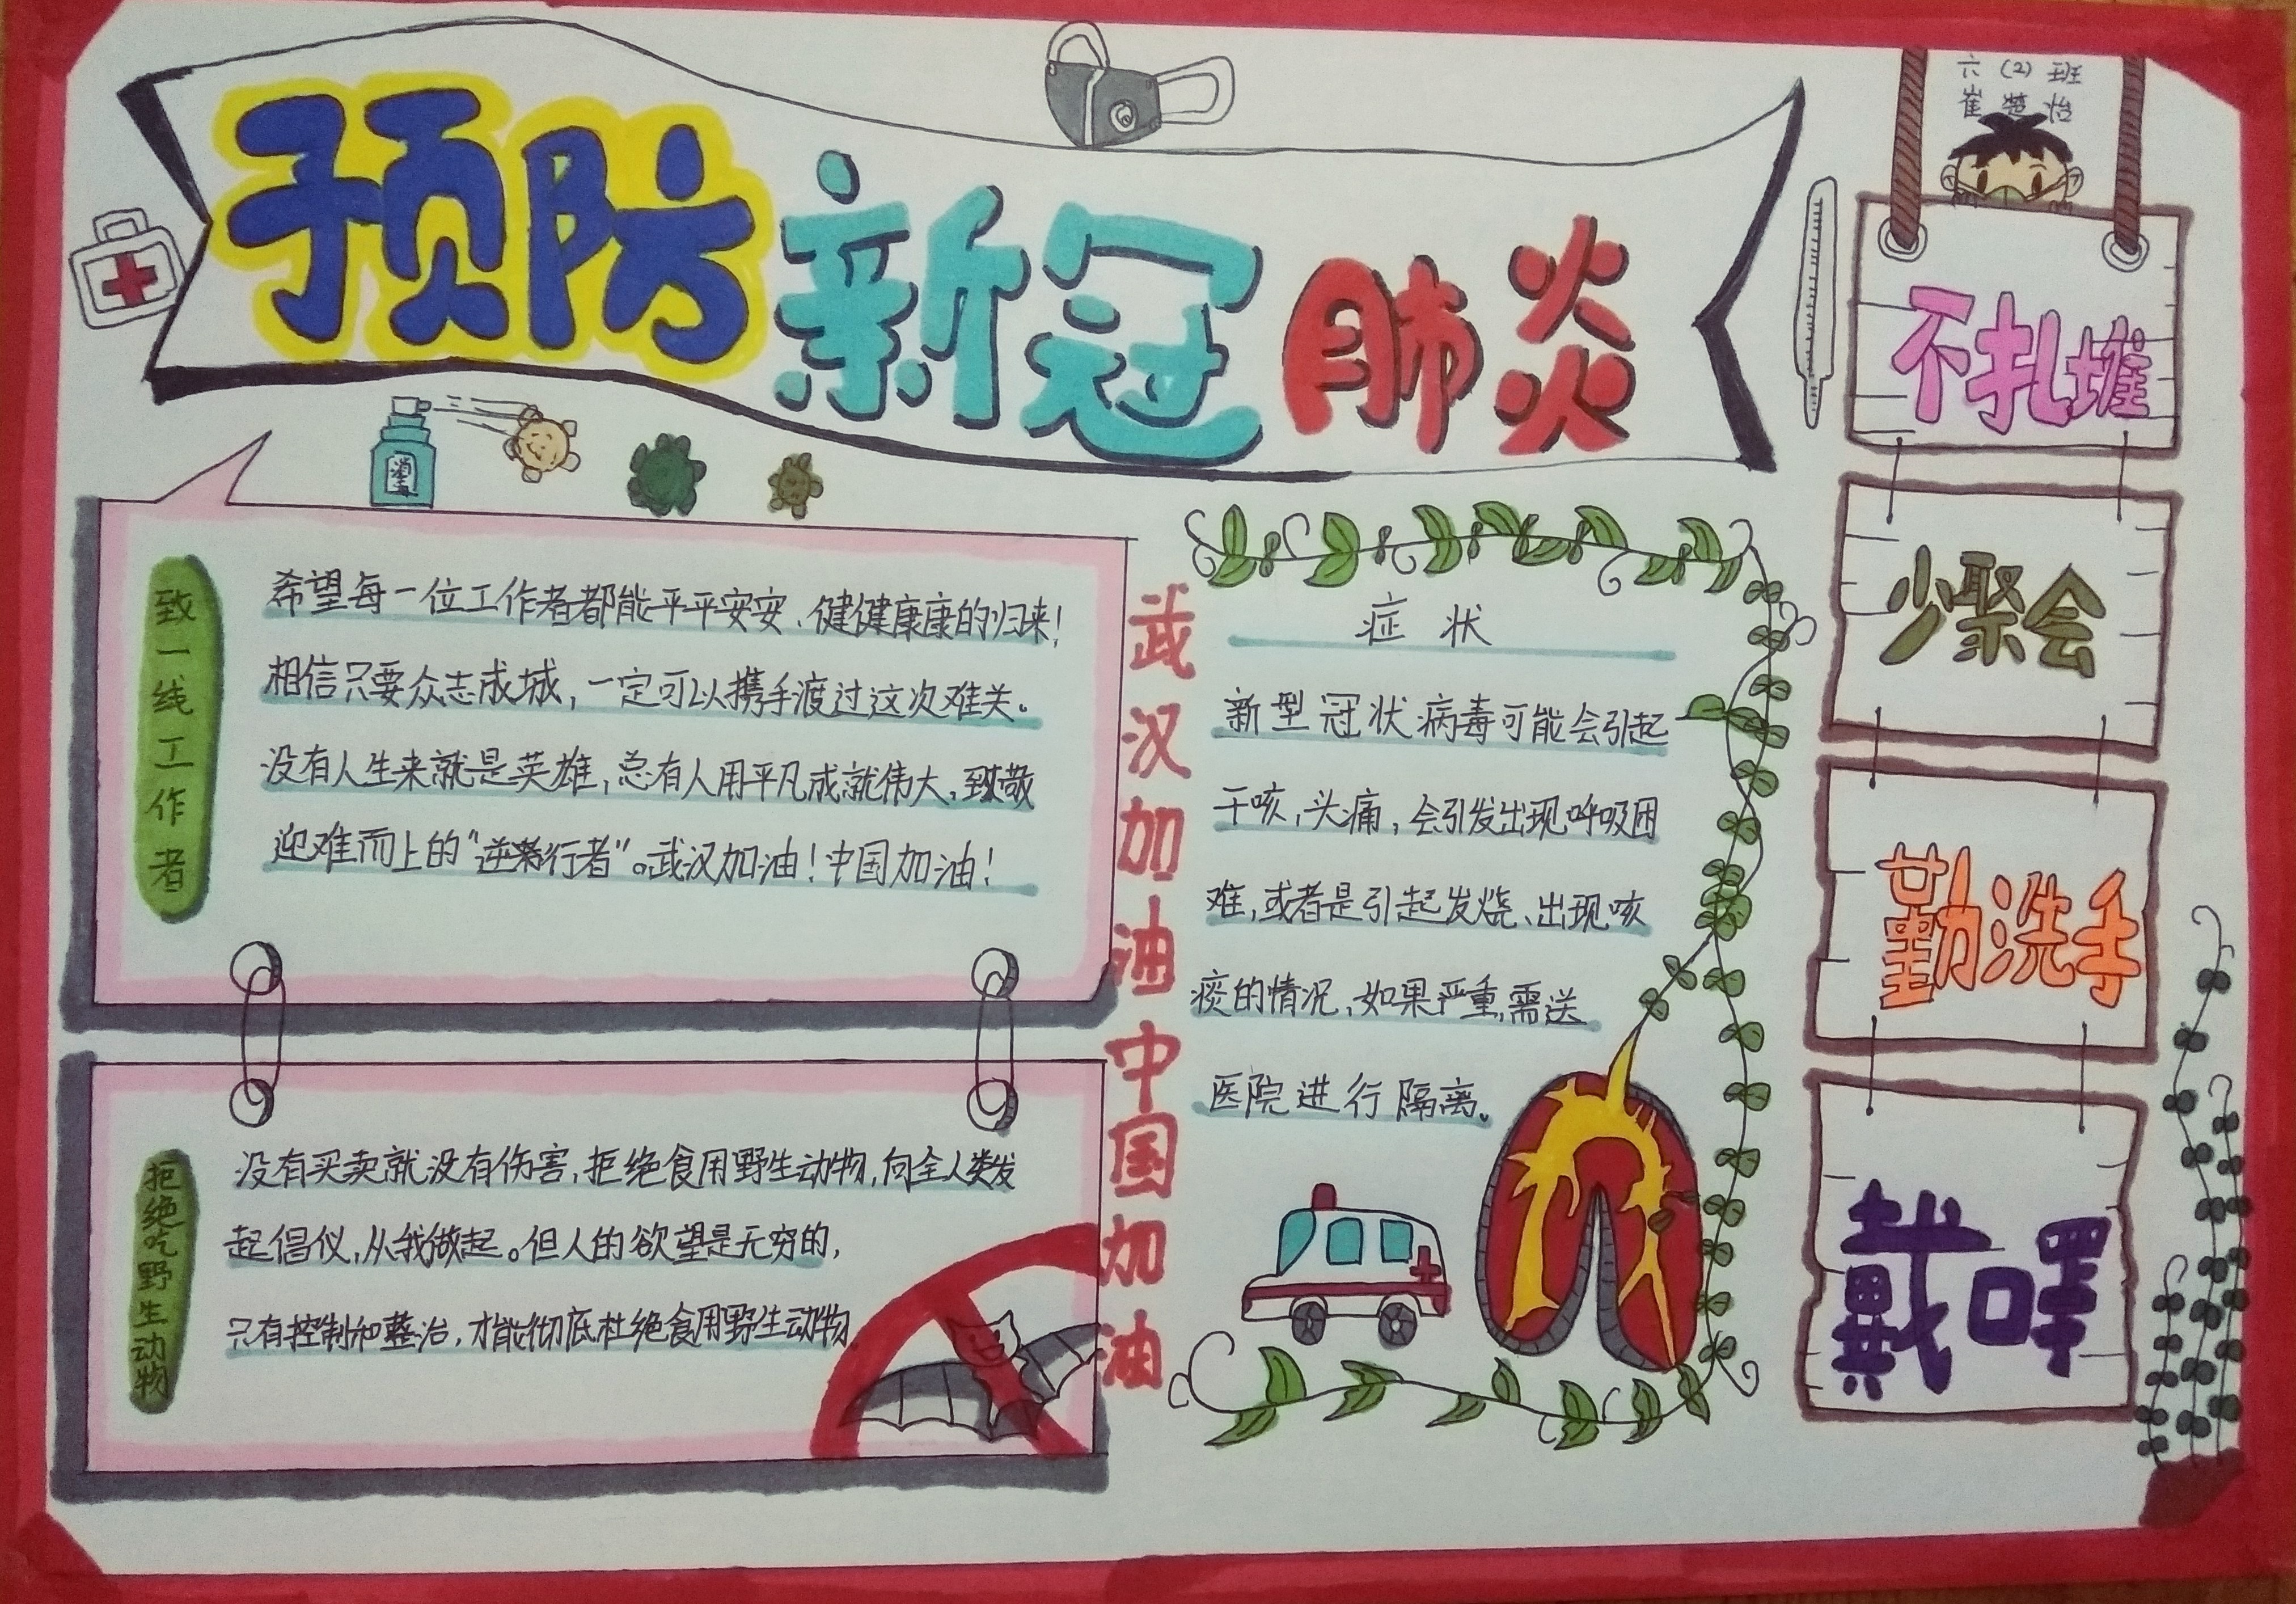 预防新冠肺炎
六(2)班
崔楚怡
消毒
致一线工作者
希望每一位工作者都能平平安安、健健康康的归来!
相信只要众志成城,一定可以携手渡过这次难关。
没有人生来就是英雄,总有人用平凡成就伟大,致敬
迎难而上的“逆行者”。武汉加油!中国加油!
拒绝吃野生动物
没有买卖就没有伤害,拒绝食用野生动物,向全人类发
起倡仪,从我做起。但人的欲望是无穷的,
只有控制和整治,才能彻底杜绝食用野生动物.
武汉加油中国加油
症状
新型冠状病毒可能会引起
干咳,头痛,会引发出现呼吸困
难,或者是引起发烧、出现咳
痰的情况,如果严重,需送
医院进行隔离。
不扎堆
少聚会
勤洗手
戴口罩